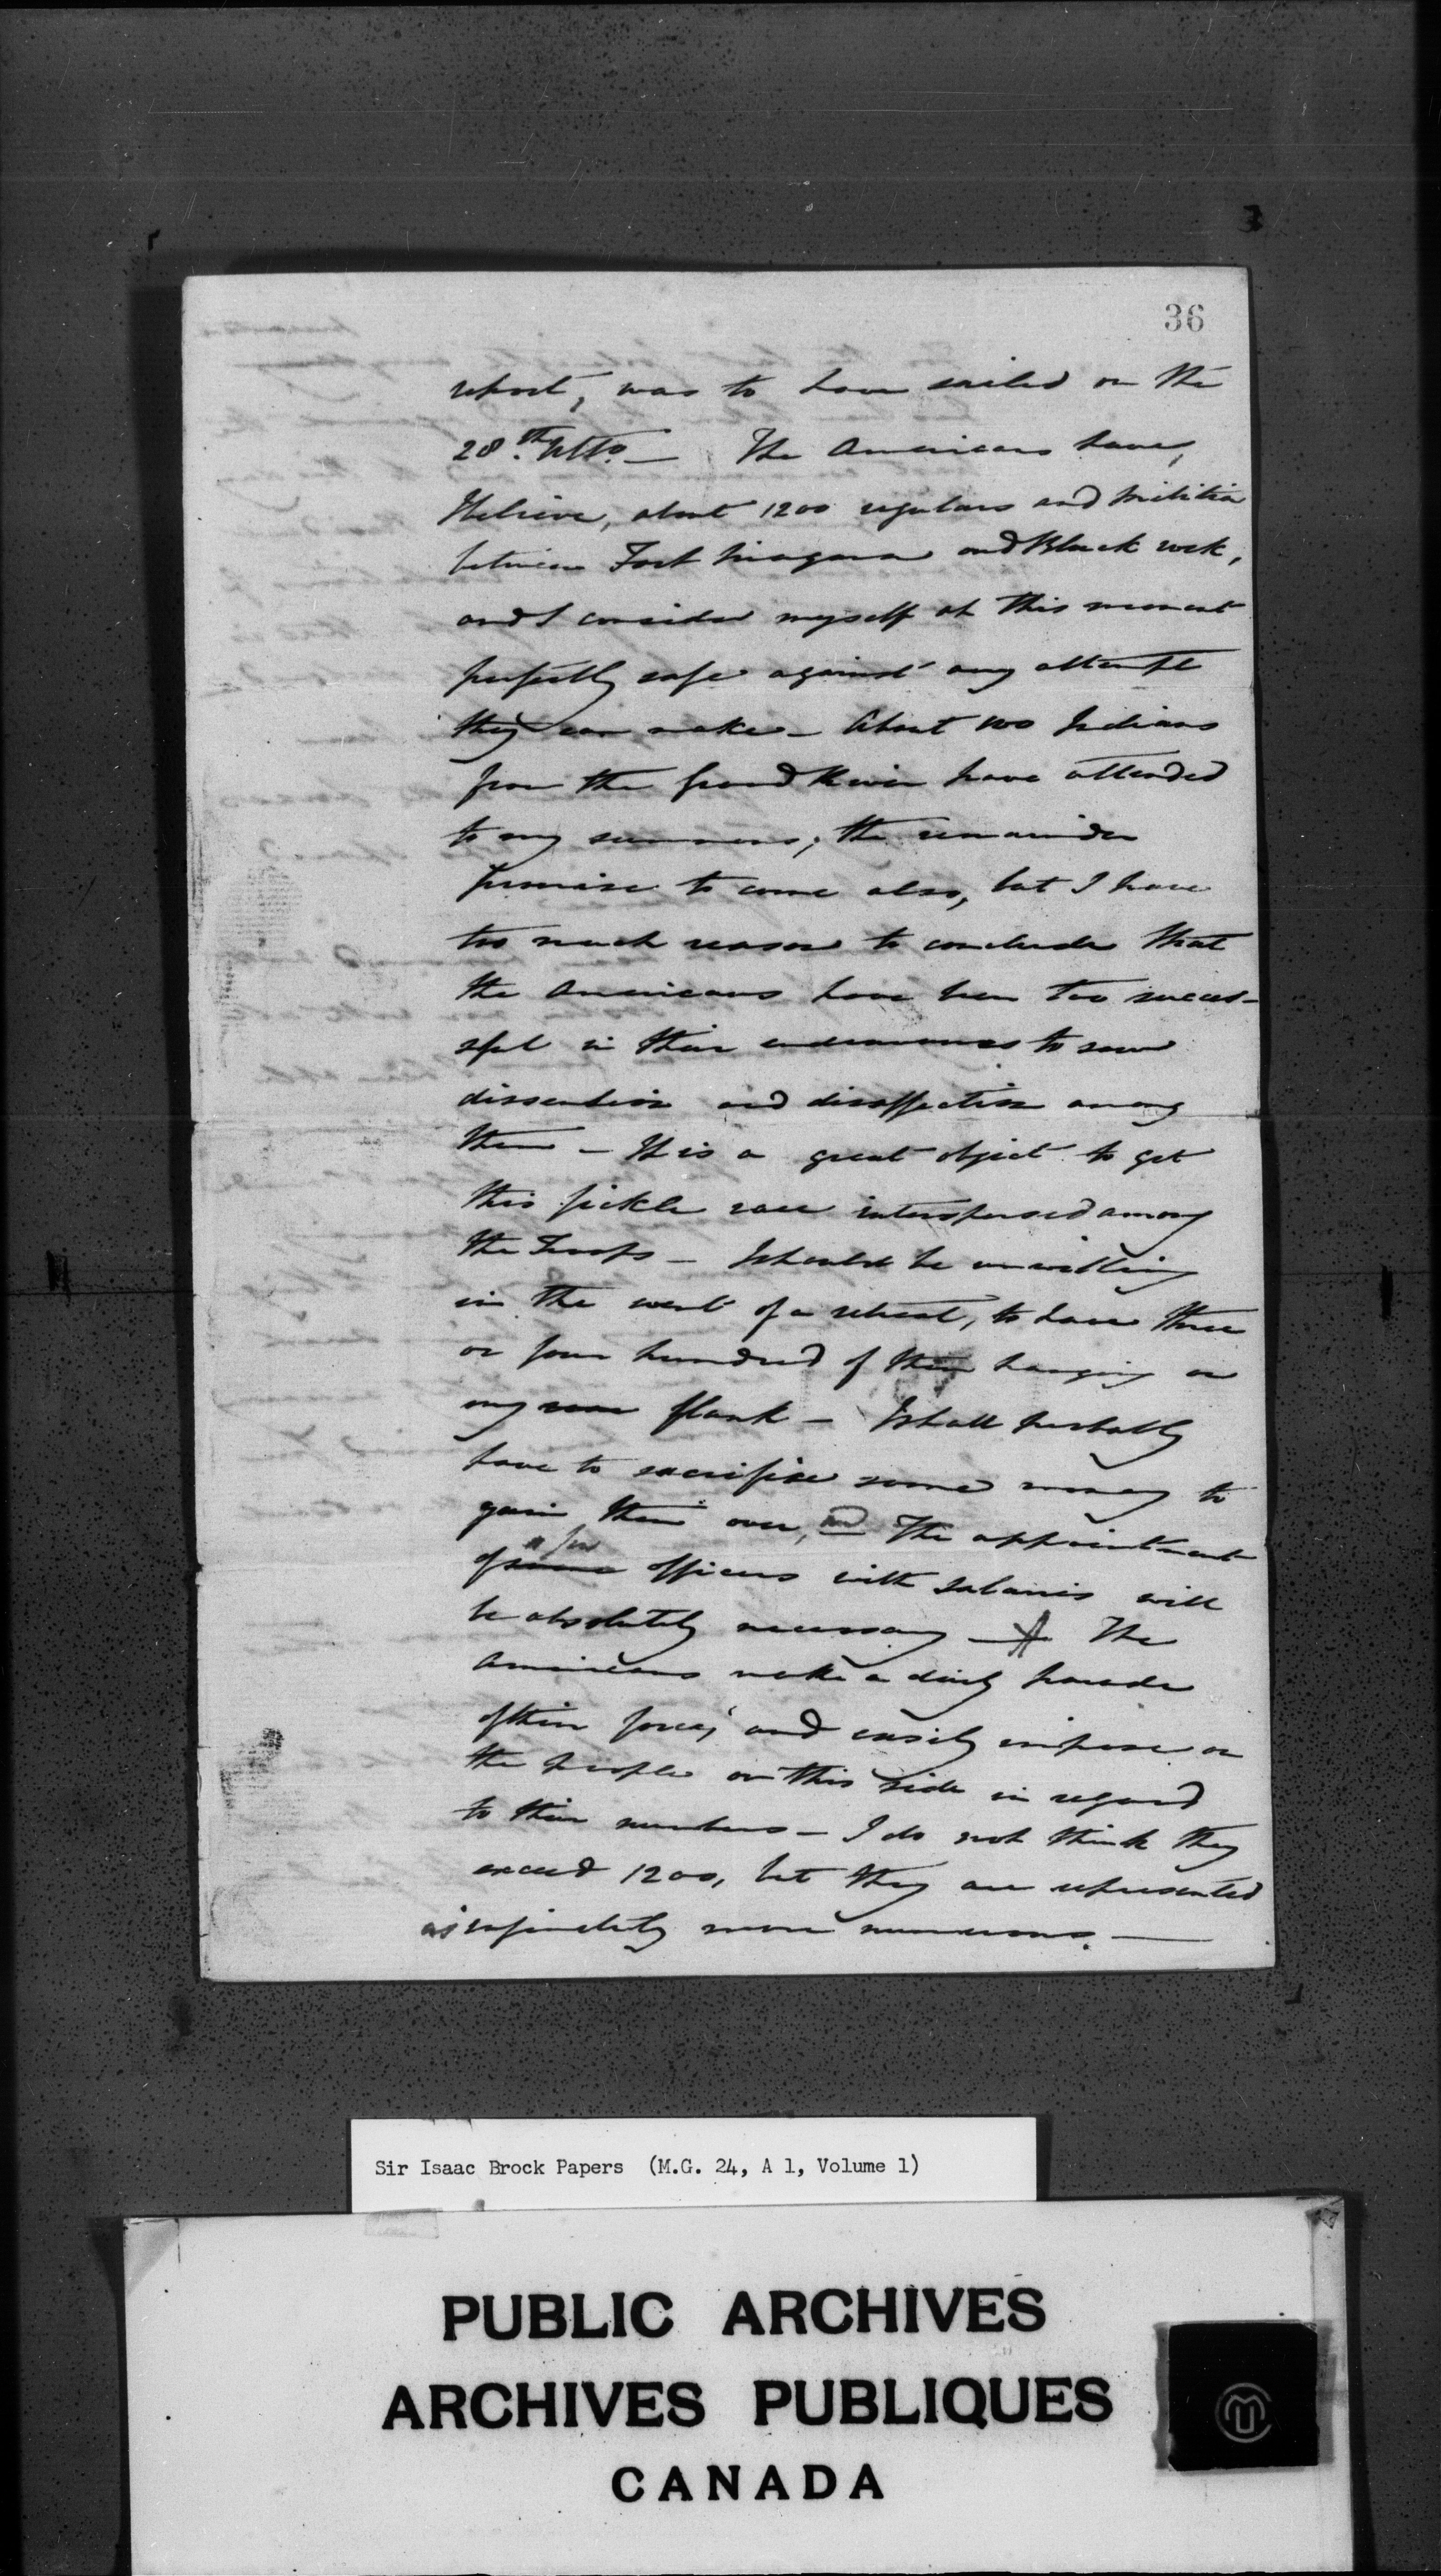 36
report, was to have sailed on the
28.th Ulto. — The Americans have,
I believe, about 1200 regulars and Militia
between Fort Niagara and Black rock,
and I consider myself at this moment
perfectly safe against any attempt
they can make — About 100 Indians
from the Grand River have attended
to my summons; the remainder
promise to come also, but I have
too much reason to conclude that
the Americans have been too succes-
sful in their endeavours to sow
dissention and disaffection among
them — It is a great object to get
this fickle race interspersed among
the Troops — I should be unwilling
in the event of a retreat, to have three
or four hundred of them hanging on
my rear flank — I shall probably
have to sacrifice some money to
gain them over, and The appointment
a few
of some officers with salaries will
be absolutely necessary — The
Americans make a daily parade
of their force, and easily impose on
the people on this side in regard
to their numbers — I do not think they
exceed 1200, but they are represented
as infinitely more numerous. —
Sir Isaac Brock Papers (M.G. 24, A 1, Volume 1)
PUBLIC ARCHIVES
ARCHIVES PUBLIQUES
CANADA